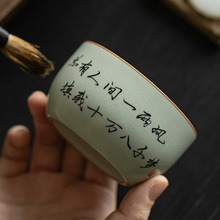 为有人间一两风
填我十万八千梦